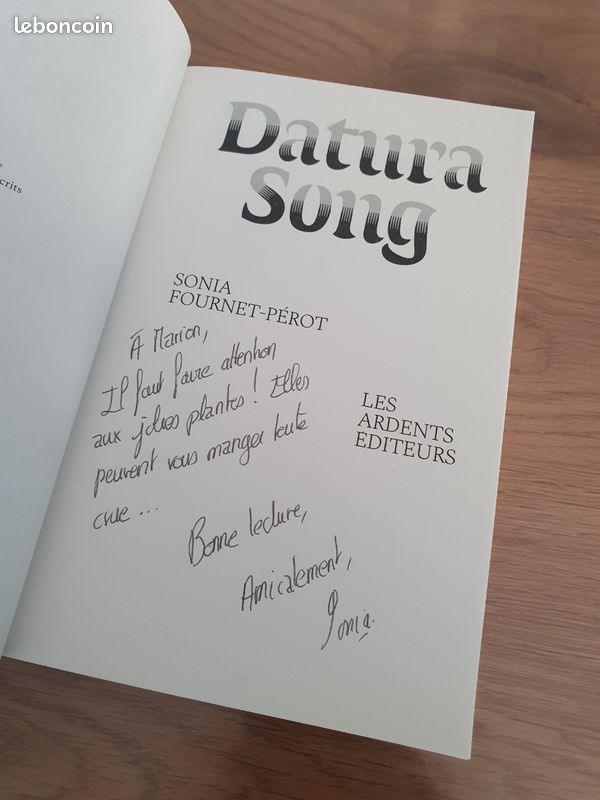 leboncoin
crits
Datura
Song
SONIA
FOURNET-PÉROT
À Marion,
Il faut faire attention
aux jolies plantes ! Elles
peuvent vous manger toute
crue ...
LES
ARDENTS
ÉDITEURS
Bonne lecture,
Amicalement,
Sonia.